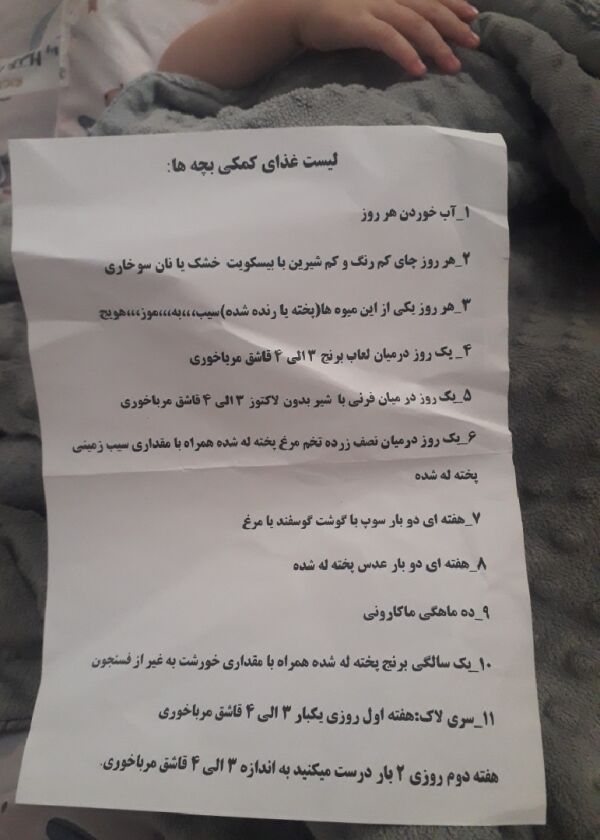 لیست غذای کمکی بچه ها:
۱_آب خوردن هر روز
۲_هر روز چای کم رنگ و کم شیرین با بیسکویت خشک یا نان سوخاری
۳_هر روز یکی از این میوه ها(پخته یا رنده شده)سیب،،،به،،،موز،،،هویج
۴_ یک روز درمیان لعاب برنج ۳ الی ۴ قاشق مرباخوری
۵_یک روز در میان فرنی با شیر بدون لاکتوز ۳ الی ۴ قاشق مرباخوری
۶_یک روز درمیان نصف زرده تخم مرغ پخته له شده همراه با مقداری سیب زمینی
پخته له شده
۷_هفته ای دو بار سوپ با گوشت گوسفند یا مرغ
۸_هفته ای دو بار عدس پخته له شده
۹_ده ماهگی ماکارونی
۱۰_یک سالگی برنج پخته له شده همراه با مقداری خورشت به غیر از فسنجون
۱۱_سری لاک:هفته اول روزی یکبار ۳ الی ۴ قاشق مرباخوری
هفته دوم روزی ۲ بار درست میکنید به اندازه ۳ الی ۴ قاشق مرباخوری.